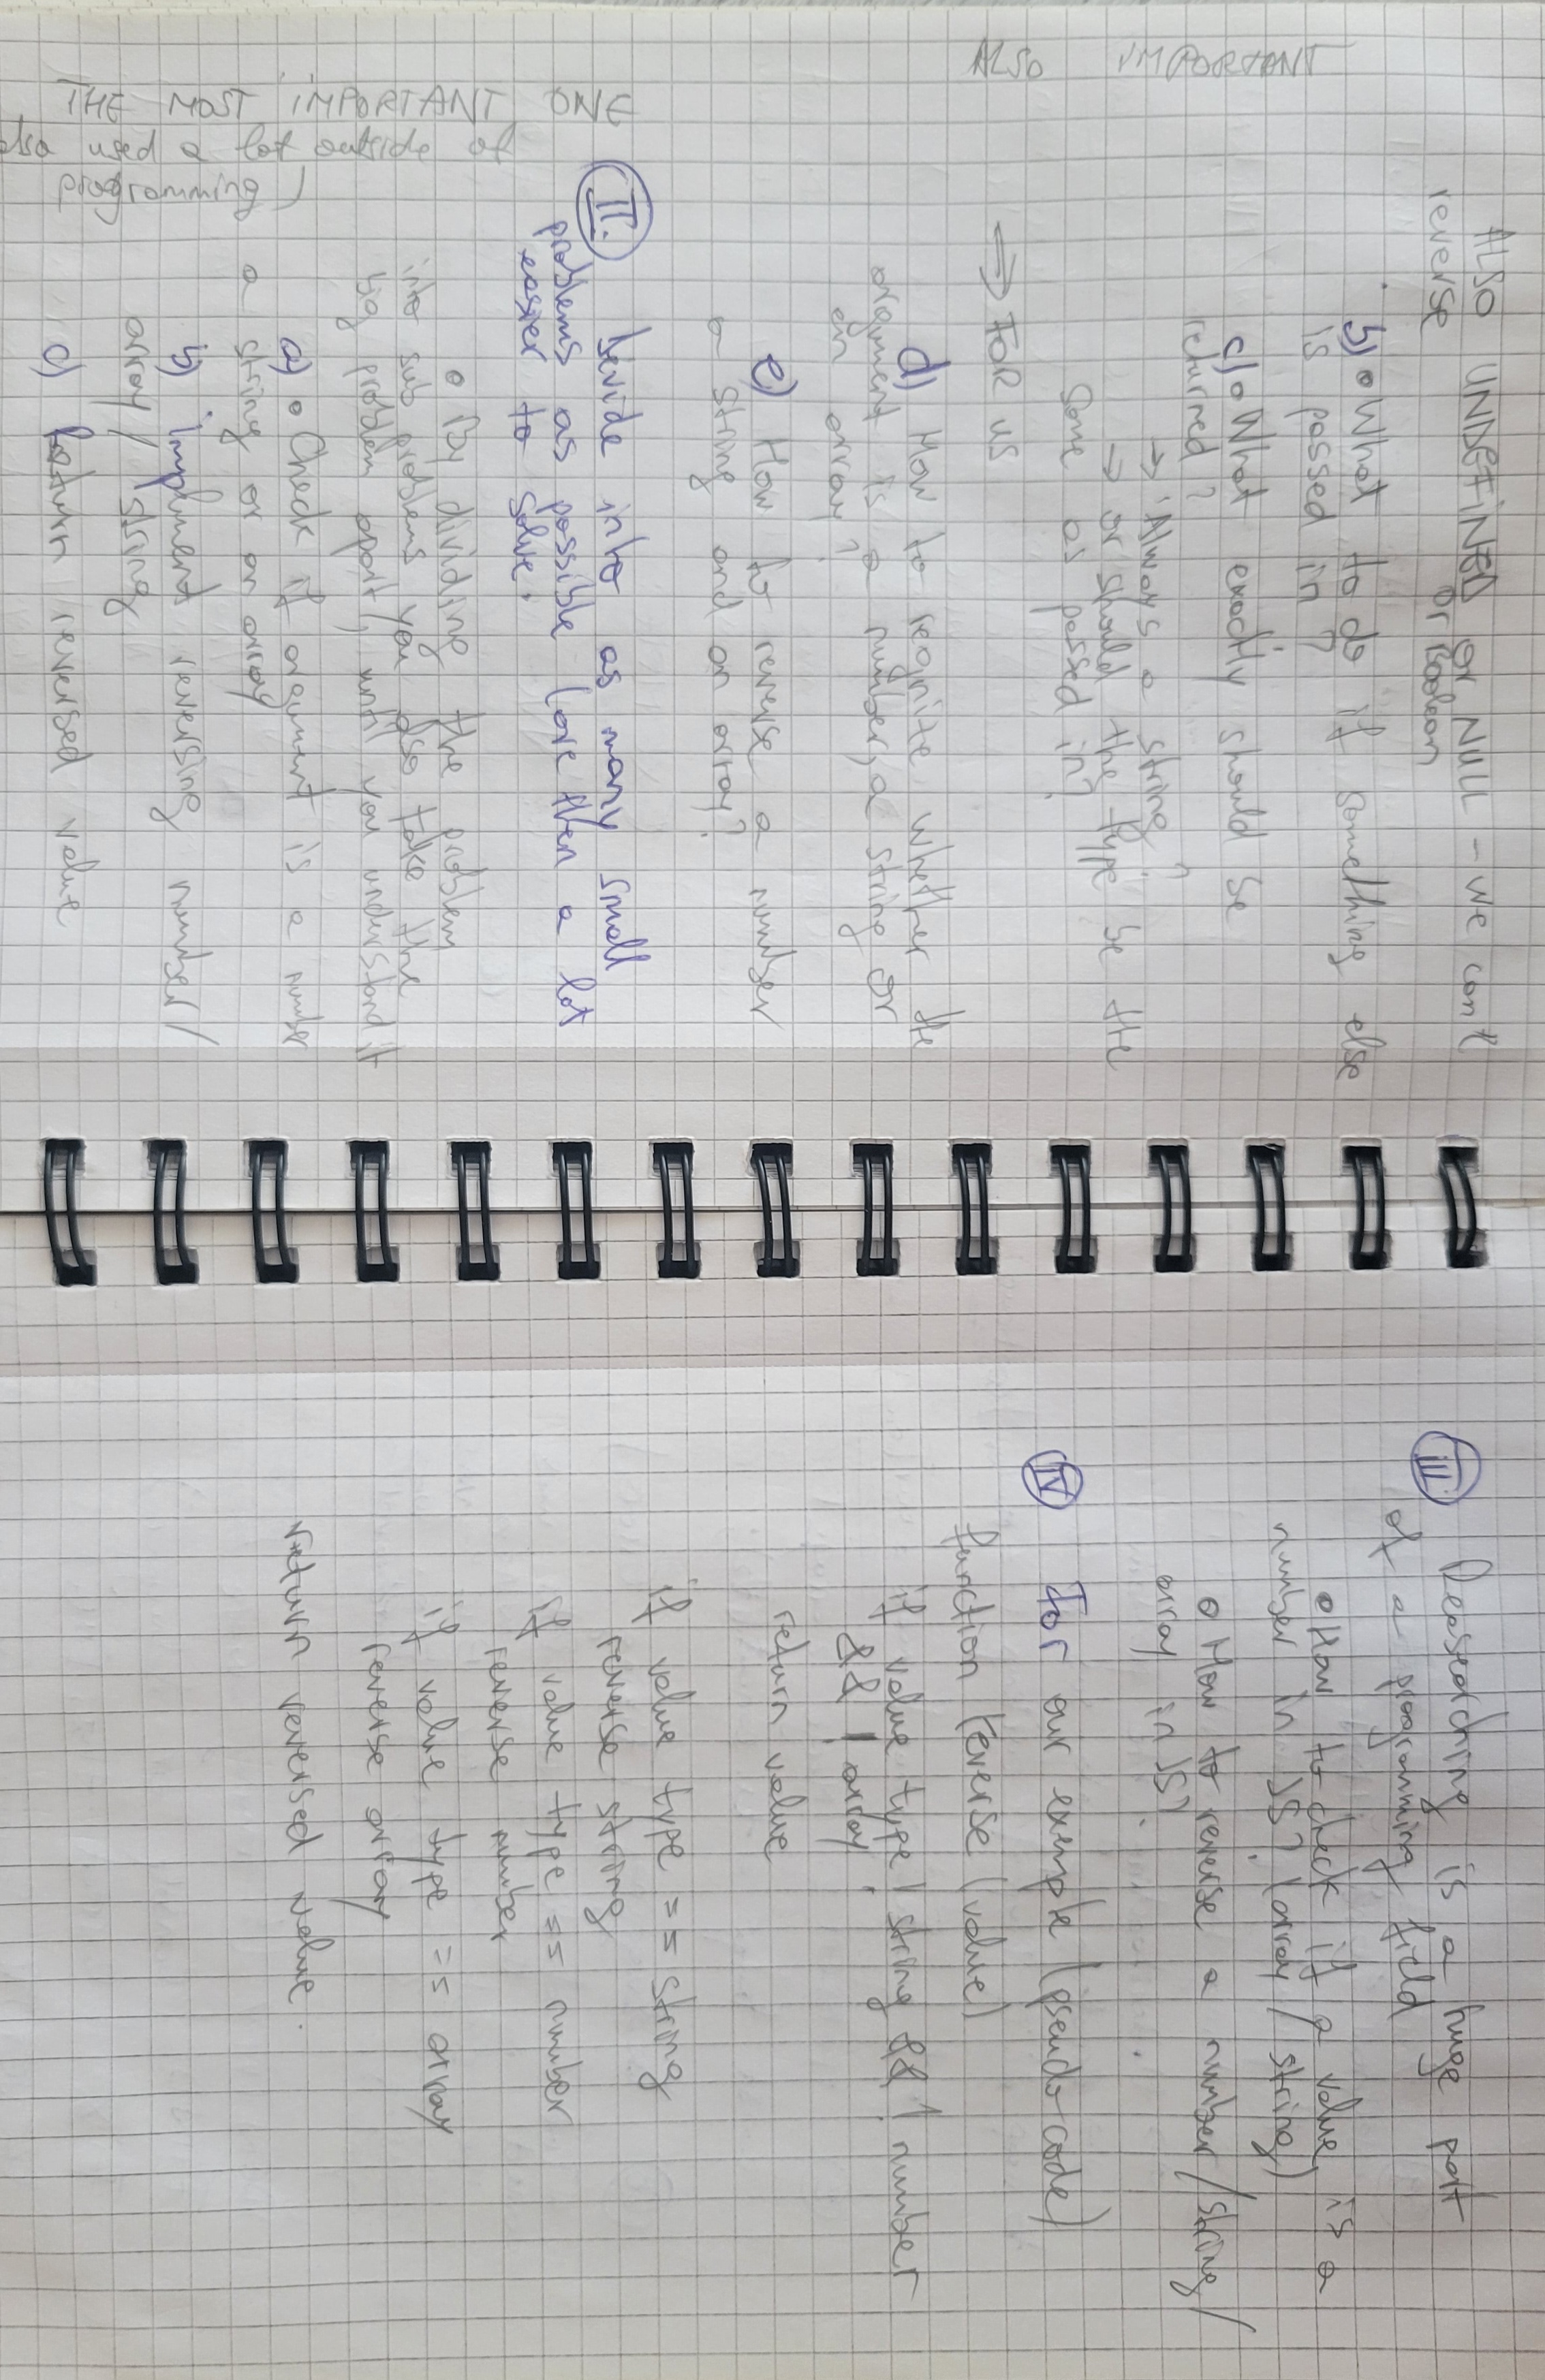 ALSO UNDEFINED or NULL - we can't
reverse or Boolean
b) • What to do if something else
is passed in?
c) • What exactly should be
returned?
→ Always a string?
→ or should the type be the
same as passed in?
⇒ FOR US
d) How to regnite whether the
argument is a number, a string or
an array?
e) How to reverse a number
a string and an array?
ALSO IMPORTANT
II. Devide into as many small
problems as possible (are then a lot
easier to solve.
• By dividing the problem
into sub problems you also take the
big problem apart, until you understand it
a) • Check if argument is a number
a string or an array
b) impliment reversing number/
array / string
c) Return reversed value
THE MOST IMPORTANT ONE
also used a lot outside of
programming)
III. Reasearching is a huge part
of a programming field
• How to check if a value, is a
number in JS? (array / string)
• How to reverse a number / string /
array in JS?
IV For our exemple (pseudo-code)
function reverse (value)
if value type ! string && ! number
&& ! array
return value
if value type == string
reverse string
if value type == number
reverse number
if value type == array
reverse array
return reversed value.